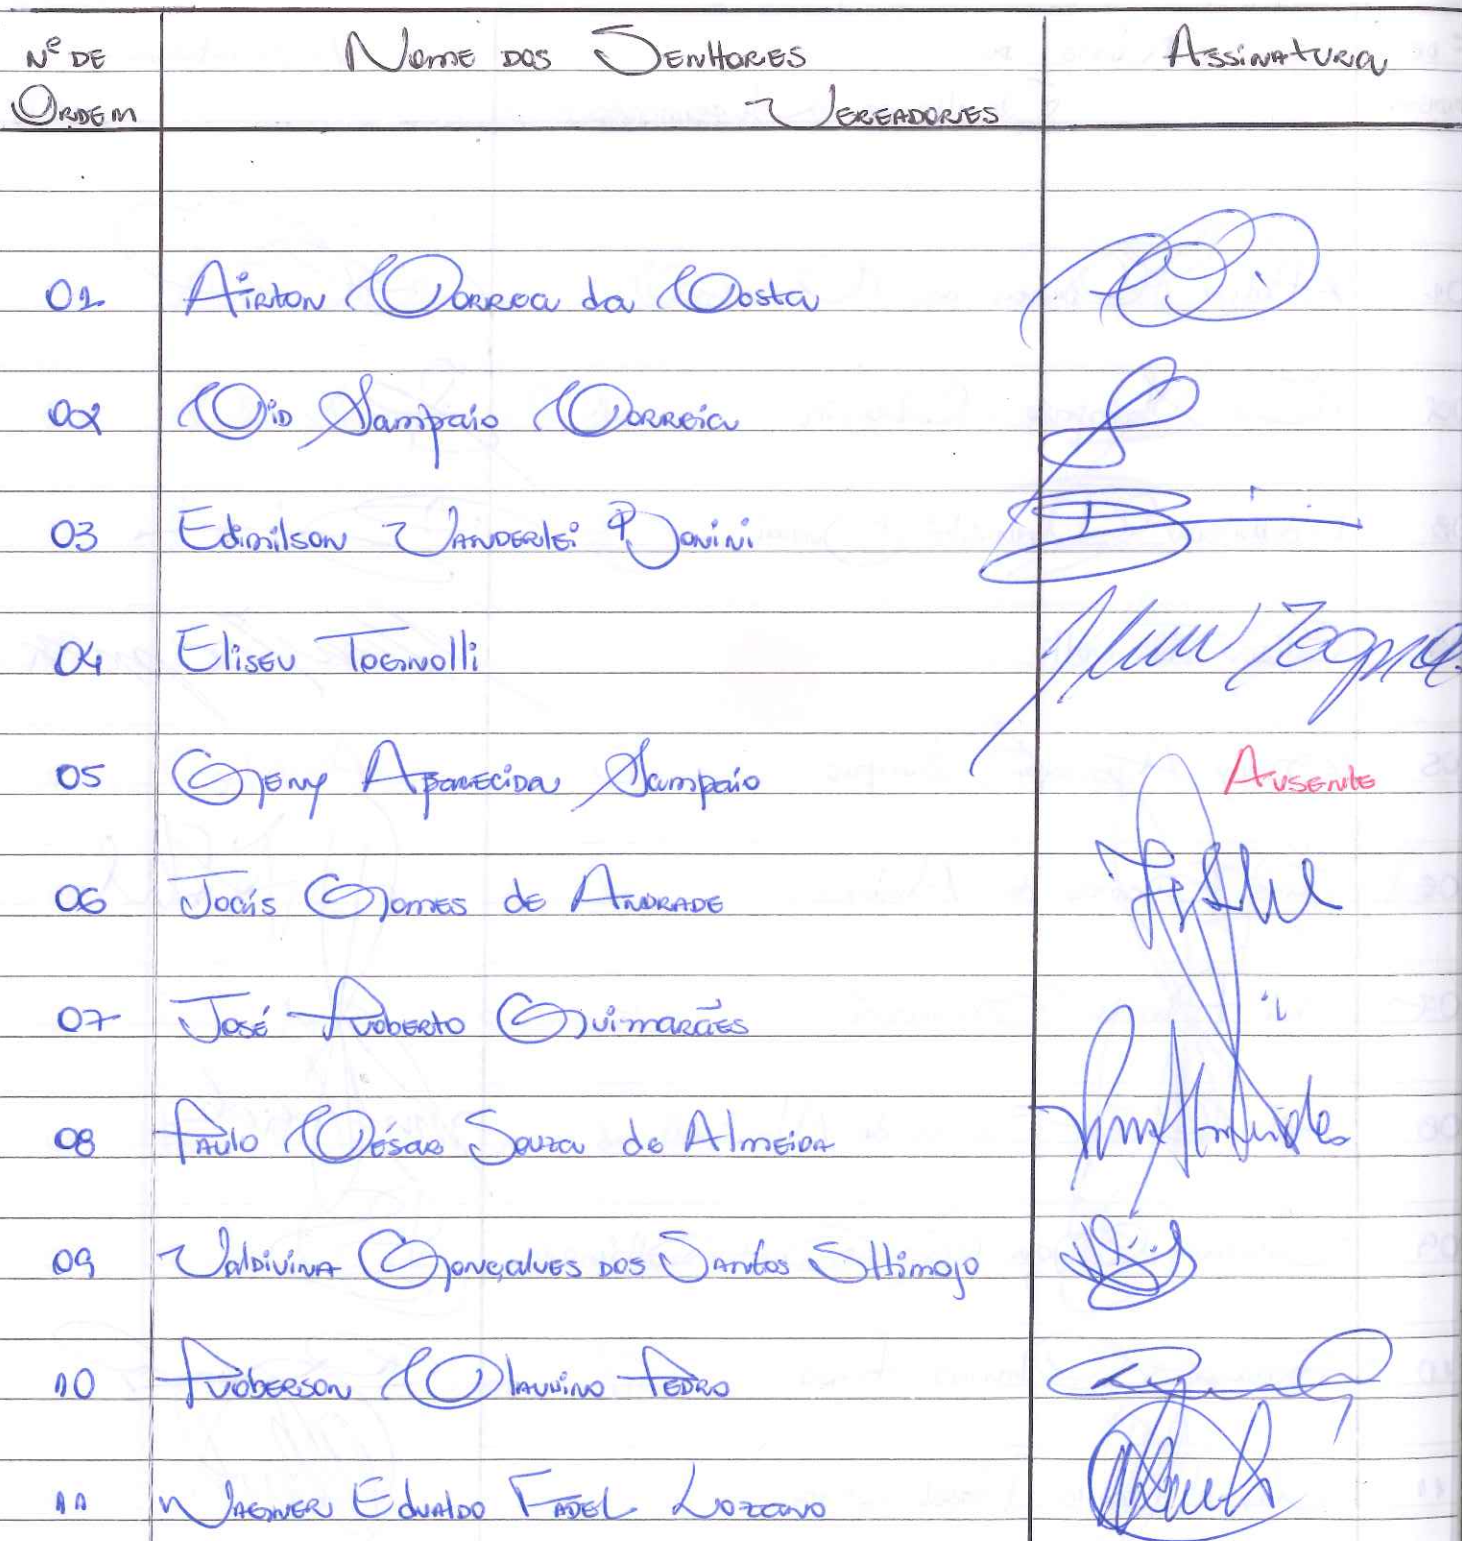 Nº DE Nome DOS SENHORES Assinatura
ORDEM VEREADORES
01 Airton Correa da Costa
02 Cid Sampaio Correia
03 Edimilson Vanderlei Bonini
04 Eliseu Tognolli
05 Geny Aparecida Sampaio Ausente
06 Joás Gomes de Andrade
07 José Roberto Guimarães
08 Paulo César Souza de Almeida
09 Valdivina Gonçalves dos Santos Shimojo
10 Roberson Claudino Pedro
11 Wagner Edvaldo Fadel Lozano